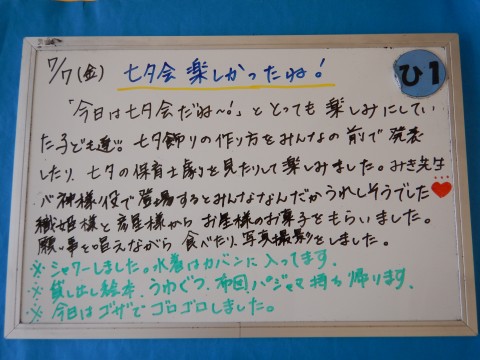 7/7(金) 七夕会 楽しかったね!
ひ1
「今日は七夕会だね〜!」と とっても 楽しみにしてい
た子ども達!! 七夕飾りの作り方をみんなの前で発表
したり、七夕の保育士劇を見たりして楽しみました。みき先生
が神様役で登場するとみんななんだかうれしそうでした♥
織姫様と彦星様から お星様のお菓子をもらいました。
願い事を唱えながら 食べたり、写真撮影をしました。
※シャワーしました。水着はカバンに入ってます。
※貸し出し絵本、うわぐつ、布団、パジャマ 持ち帰ります。
※今日はゴザでゴロゴロしました。